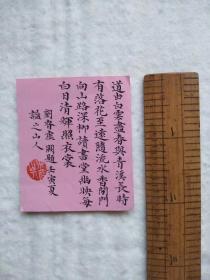 道由白雲盡春與青溪長時
有落花至遠隨流水香閒門
向山路深柳讀書堂幽映每
白日清輝照衣裳
劉眘虛 闕題 壬寅夏
謐之山人